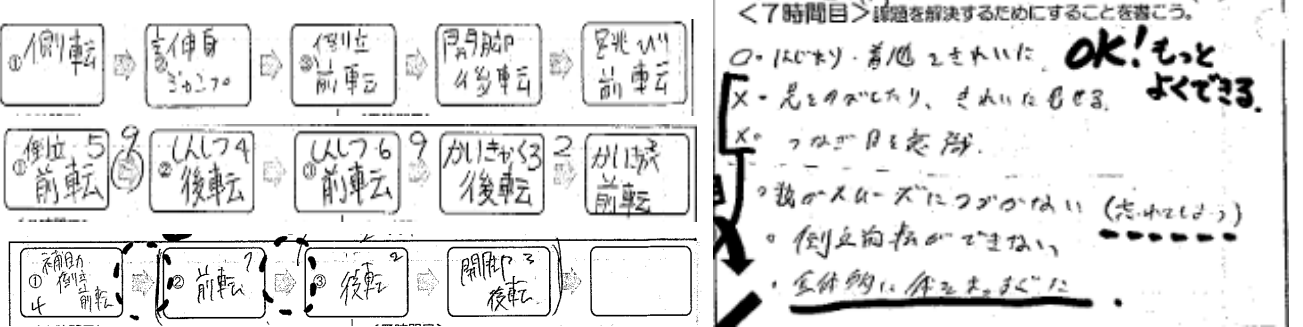 ①側転
②伸身
③倒立
前転
開脚
後転
跳び
前転
①倒立 5
前転
9
②しんしつ4
後転
③しんしつ6
前転
9
かいきゃく3
後転
2
前転
①補助
倒立
前転
4
②前転 1
③後転 2
開脚 3
後転
<7時間目>課題を解決するためにすることを書こう。
○・はじまり・着地をきれいに
OK!もっと
よくできる。
×・足をのばしたり、きれいに見せる。
×・つなぎ目を意識.
・技がスムーズにつづかない (忘れてしまう)
・倒立前転ができない、
・全体的に体をまっすぐに